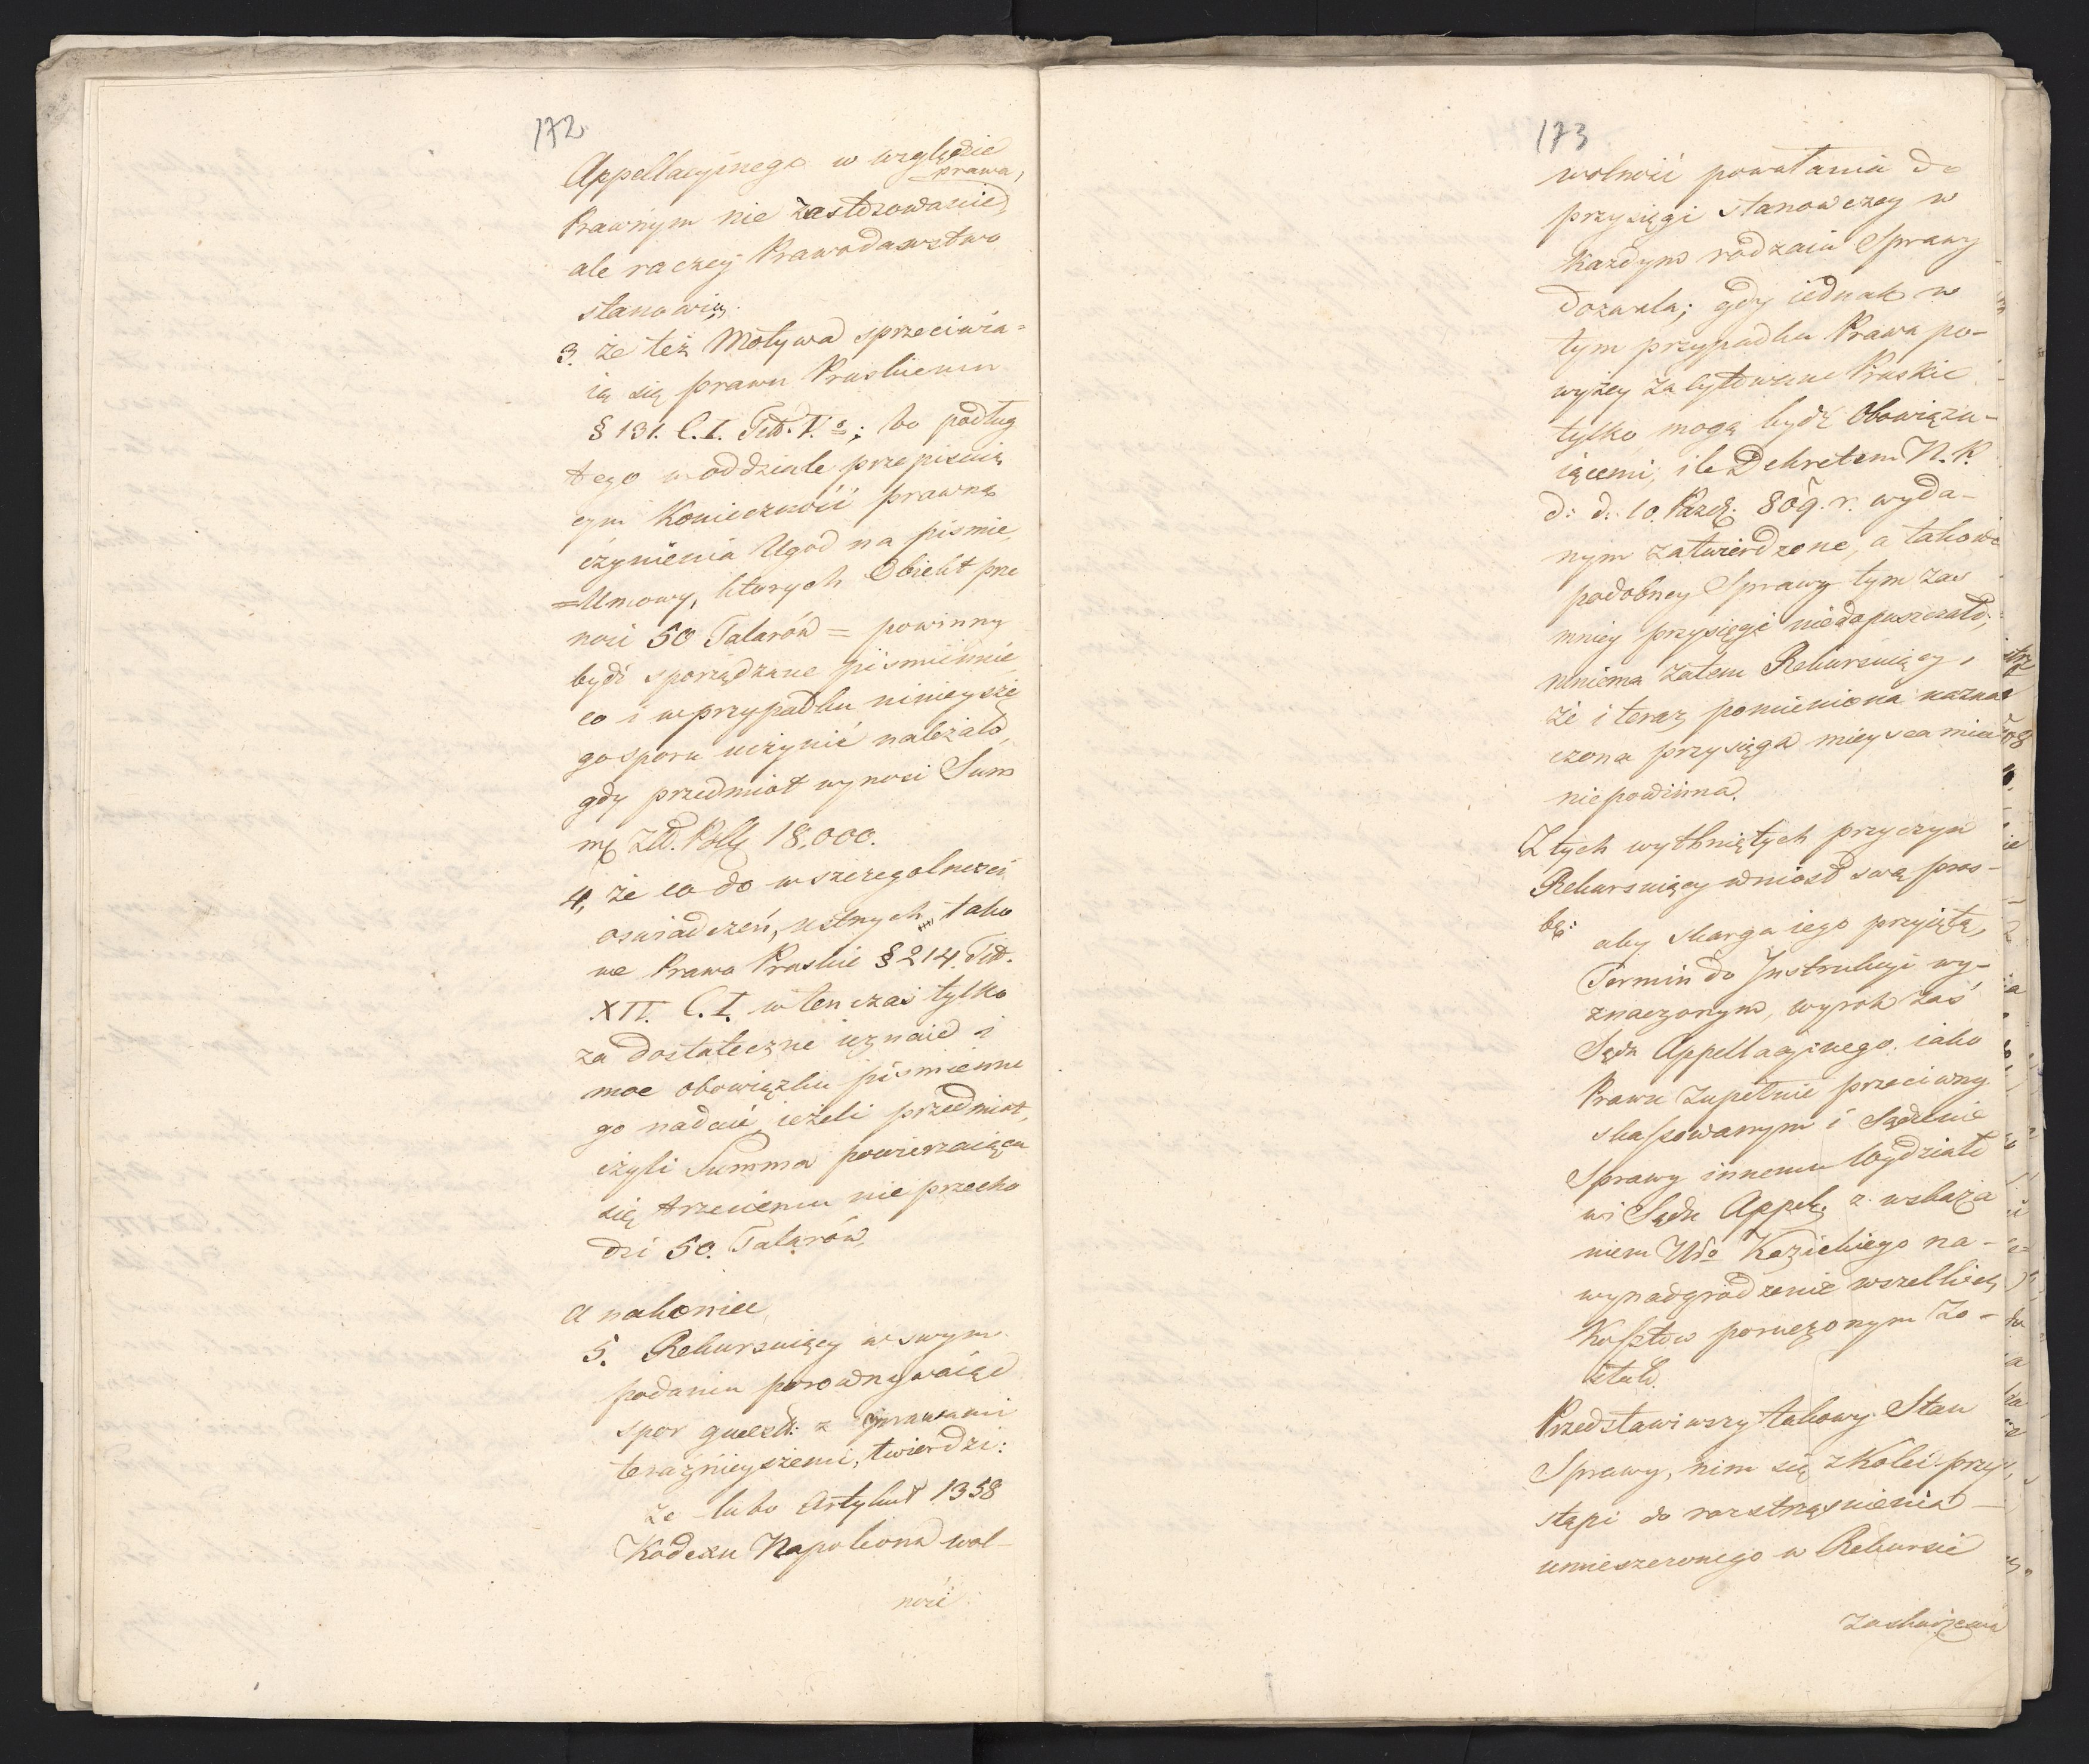 172
Appellacyinego w względzie
prawa,
Prawnym nie zastosowanie,
ale raczey Prawodawstwo
stanowią.
3. że też Motywa sprzeciwia=
ią się prawu Pruskiemu
§ 131. C. I. Tit. V.; bo podług
tego w oddziale przepisuią
cym Konieczność prawną
czynienia Ugod na pismie,
=Umowy, ktorych Obiekt prze
nosi 50 Talarów = powinny
bydź sporządzane pismiennie
co i w przypadku ninieysze
go sporu uczynić należało,
gdy przedmiot wynosi Sum
mę Złł. Pollˢ 18,000.
4, że co do w szczegolności
oswiadczeń, ustnych, tako
we Prawo Pruskie § 214. Titt.
XII. C. I. w ten czas tylko
za dostateczne uznaie i
moc obowiązku pismienne
go nadaie, ieżeli przedmiot,
czyli Summa powierzaiąca
się trzeciemu nie przecho
dzi 50. Talarów,
A nakoniec
5. Rekursuiący w swym
podaniu porownywaiąc
spor quest: z sprawami
teraznieyszemi, twierdzi:
że lubo Artykuł 1358
Kodexu Napoleona wol-
ność
173
wolność powołania do
przysięgi stanowczey w
Każdym rodzaiu Sprawy
dozwala; gdy iednak w
tym przypadku Prawa po-
wyżey zacytowane Pruskie
tylko mogą bydź Obowiązu-
iącemi, ile Dekretem N. K.
d: d. 10. Paźdz. 809. r. wyda-
nym zatwierdzone, a takowe
podobney Sprawy tym zas
mniey przysięgi niedopuszczało,
mniema zatem Rekursuiący,
że i teraz pomieniona naznac
czona przysięga mieysca mieć
niepowinna.
Z tych wytkniętych przyczyn
Rekursuiący wniosł swą proz-
bę:
aby skarga iego przyiętą,
Termin do Instrukcyi wy-
znaczonym, wyrok zaś
Sądu Appellacyinego iako
Prawu zupełnie przeciwny
skassowanym i Sądzenie
Sprawy innemu Wydziało
wi Sądu Appel. z wskaza
niem Wo Kozickiego na-
wynadgrodzenie wszelkich
Kosztow poruczonym zo-
stało.
Przedstawiwszy takowy Stan
Sprawy, nim się z Kolei przy
stąpi do rozstrząsnienia
umieszczonego w Rekursie
zaskarżenia